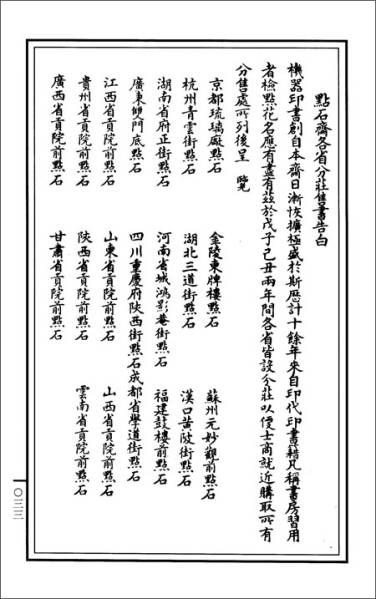 點石齋各省分莊售書告白
機器印書創自本齋日漸恢擴極盛於斯歷計十餘年來自印代印書籍凡稱書房習用
者檢點花名應有盡有茲於戊子己丑兩年間各省皆設分莊以便士商就近購取所有
分售處所列後呈 覽
京都琉璃廠點石 金陵東牌樓點石 蘇州元妙觀前點石
杭州青雲街點石 湖北三道街點石 漢口黃陂街點石
湖南省府正街點石 河南省城鴻影菴街點石 福建鼓樓前點石
廣東雙門底點石 四川重慶府陝西街點石 成都省學道街點石
江西省貢院前點石 山東省貢院前點石 山西省貢院前點石
貴州省貢院前點石 陝西省貢院前點石 雲南省貢院前點石
廣西省貢院前點石 甘肅省貢院前點石
〇三三